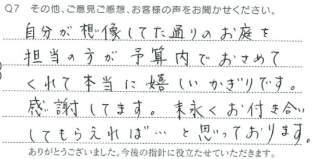 Q7 その他、ご意見ご感想、お客様の声をお聞かせください。
自分が想像してた通りのお庭を
担当の方が予算内でおさめて
くれて本当に嬉しいかぎりです。
感謝してます。末永くお付き合い
してもらえれば…と思っております。
ありがとうございました。今後の指針に役立たせていただきます。